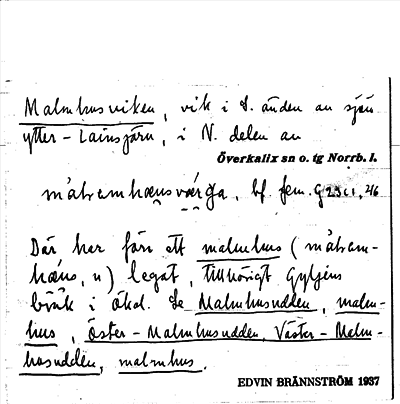 Malmhusviken, vik i S. änden av sjön
ytter-Lainsjärv, i N. delen av
Överkalix sn o. tg Norrb. l.
bf. fem.
Där har förr ett malmhus (
n) legat, tillhörigt Gyljens
bruk i Ökal. Se Malmhusudden, malm-
hus, Öster-Malmhusudden, Väster-Malm-
husudden, malmhus.
EDVIN BRÄNNSTRÖM 1937